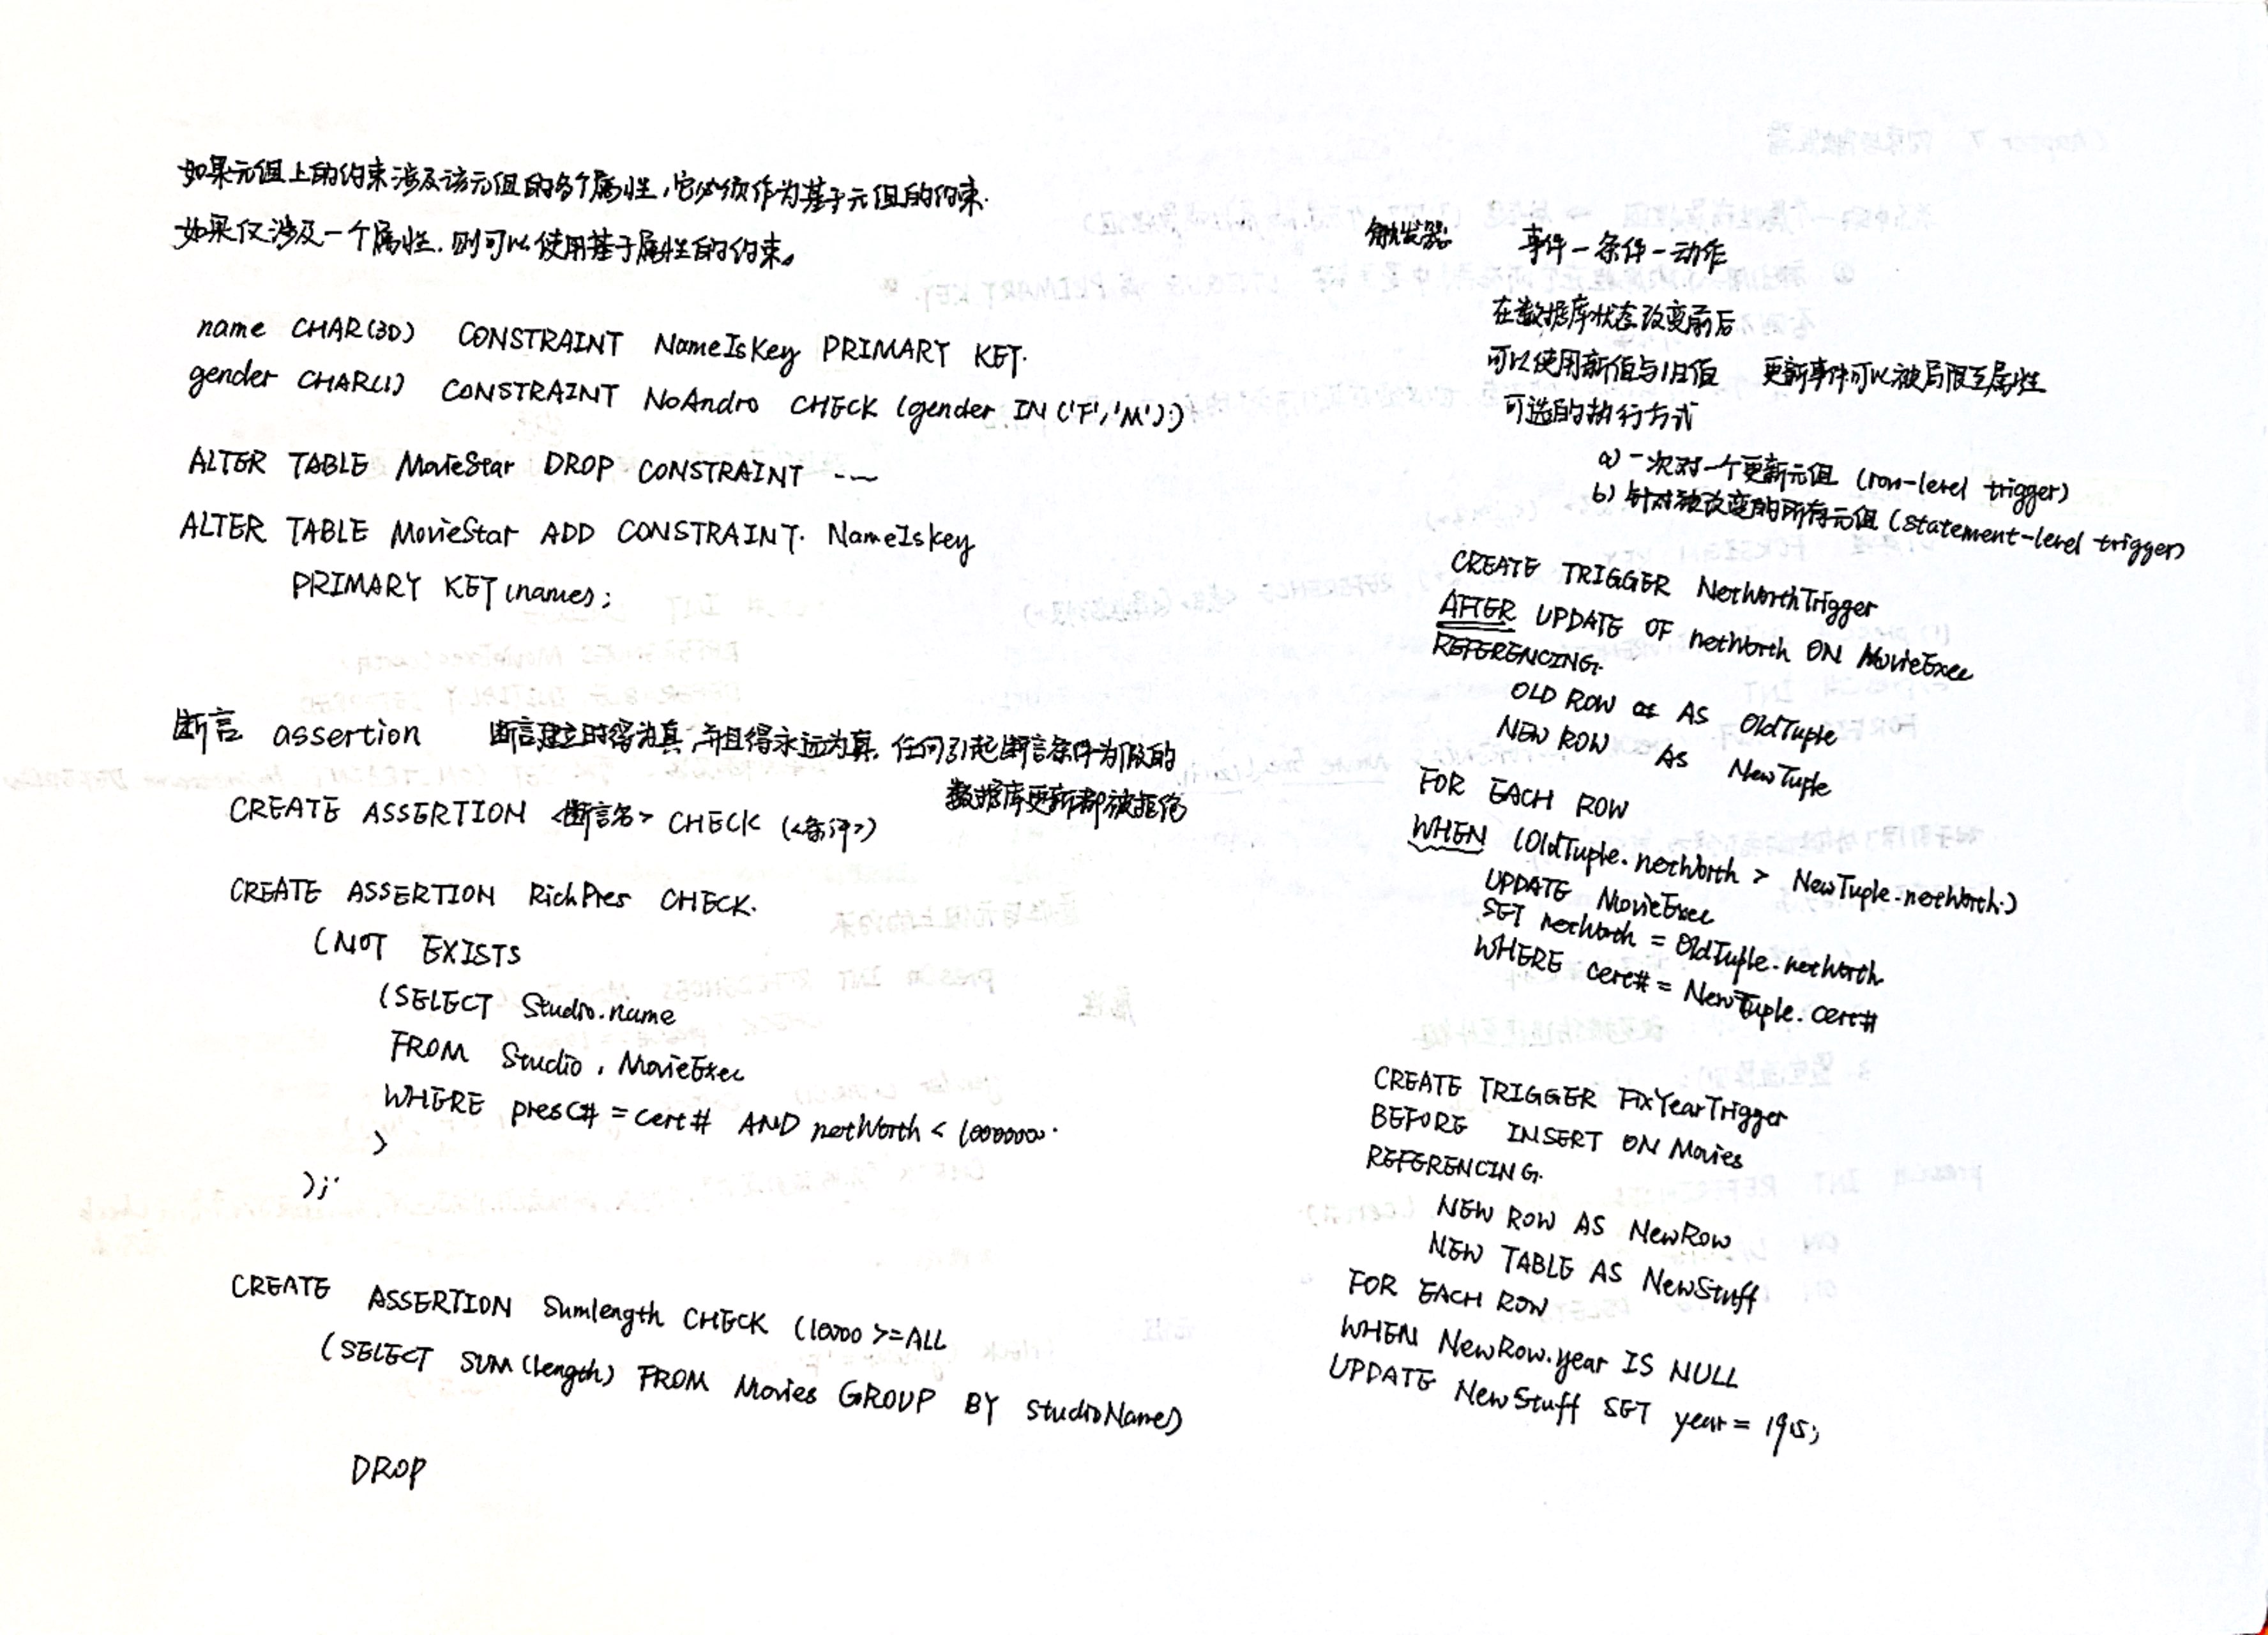 如果元组上的约束涉及该元组的多个属性,它必须作为基于元组的约束.
如果仅涉及一个属性.则可以使用基于属性的约束。
name CHAR(30) CONSTRAINT NameIsKey PRIMARY KEY.
gender CHAR(1) CONSTRAINT NoAndro CHECK (gender IN ('F','M'))
ALTER TABLE MovieStar DROP CONSTRAINT ---
ALTER TABLE MovieStar ADD CONSTRAINT. NameIskey
PRIMARY KEY (names);
断言 assertion 断言建立时得为真,并且得永远为真.任何引起断言条件为假的
数据库更新都被拒绝
CREATE ASSERTION <断言名> CHECK (<条件>)
CREATE ASSERTION RichPres CHECK.
(NOT EXISTS
(SELECT Studio.name
FROM Studio, MovieExec
WHERE presC# = cert# AND netWorth < 10000000.
)
);
CREATE ASSERTION Sumlength CHECK (10000 >=ALL
(SELECT SUM(length) FROM Movies GROUP BY studioName)
DROP
触发器 事件-条件-动作
在数据库状态改变前后
可以使用新值与旧值 更新事件可以被局限至属性
可选的执行方式
a) 一次对一个更新元组 (row-level trigger)
b) 针对被改变的所有元组 (statement-level trigger)
CREATE TRIGGER NetWorthTrigger
AFTER UPDATE OF netWorth ON MovieExec
REFERENCING.
OLD ROW AS OldTuple
NEW ROW AS NewTuple
FOR EACH ROW
WHEN (OldTuple.netWorth > NewTuple.netWorth.)
UPDATE MovieExec
SET netWorth = OldTuple.netWorth
WHERE cert# = NewTuple.cert#
CREATE TRIGGER FixYearTrigger
BEFORE INSERT ON Movies
REFERENCING.
NEW ROW AS NewRow
NEW TABLE AS NewStuff
FOR EACH ROW
WHEN NewRow.year IS NULL
UPDATE NewStuff SET year = 1915;